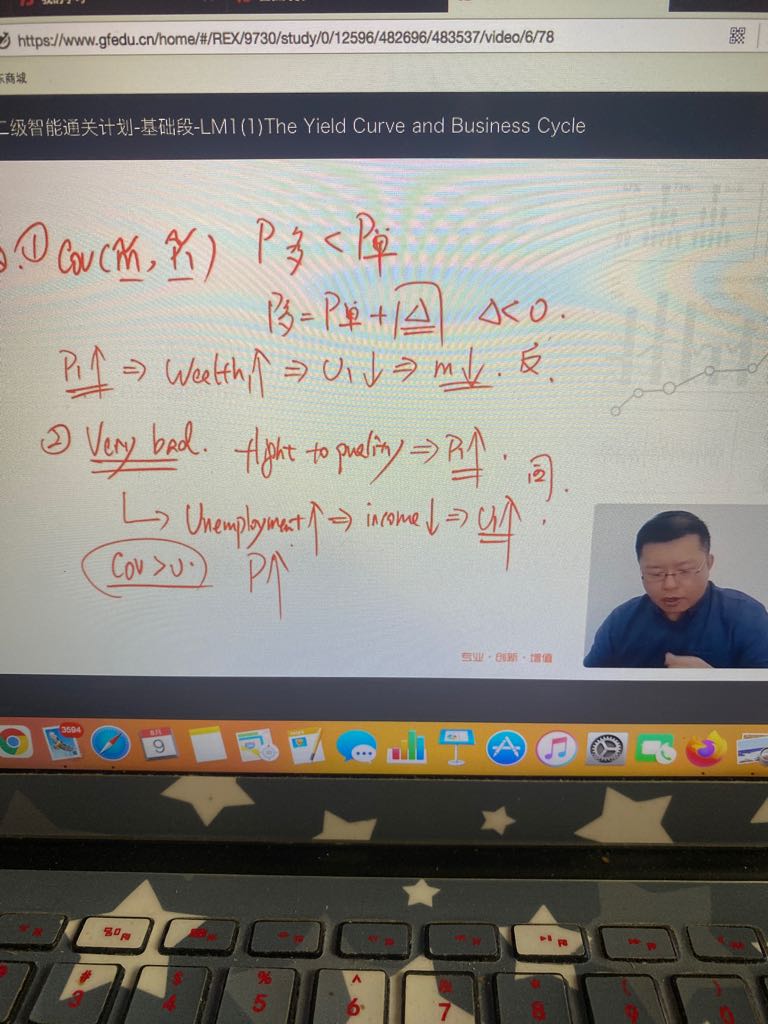 https://www.gfedu.cn/home/#/REX/9730/study/0/12596/482696/483537/video/6/78
商城
二级智能通关计划-基础段-LM1(1)The Yield Curve and Business Cycle
① Cov(m̃, P̃₁) P多 < P单
P多 = P单 + Δ Δ<0.
P₁↑ ⇒ Wealth₁↑ ⇒ U₁↓ ⇒ m↓. 反.
② Very bad. flight to quality ⇒ P₁↑. 同.
↳ Unemployment↑ ⇒ income↓ ⇒ U₁↑.
Cov>0. P↑
专业·创新·增值
3594
9
# $ % ^
3 4 5 6 7 8 9 0